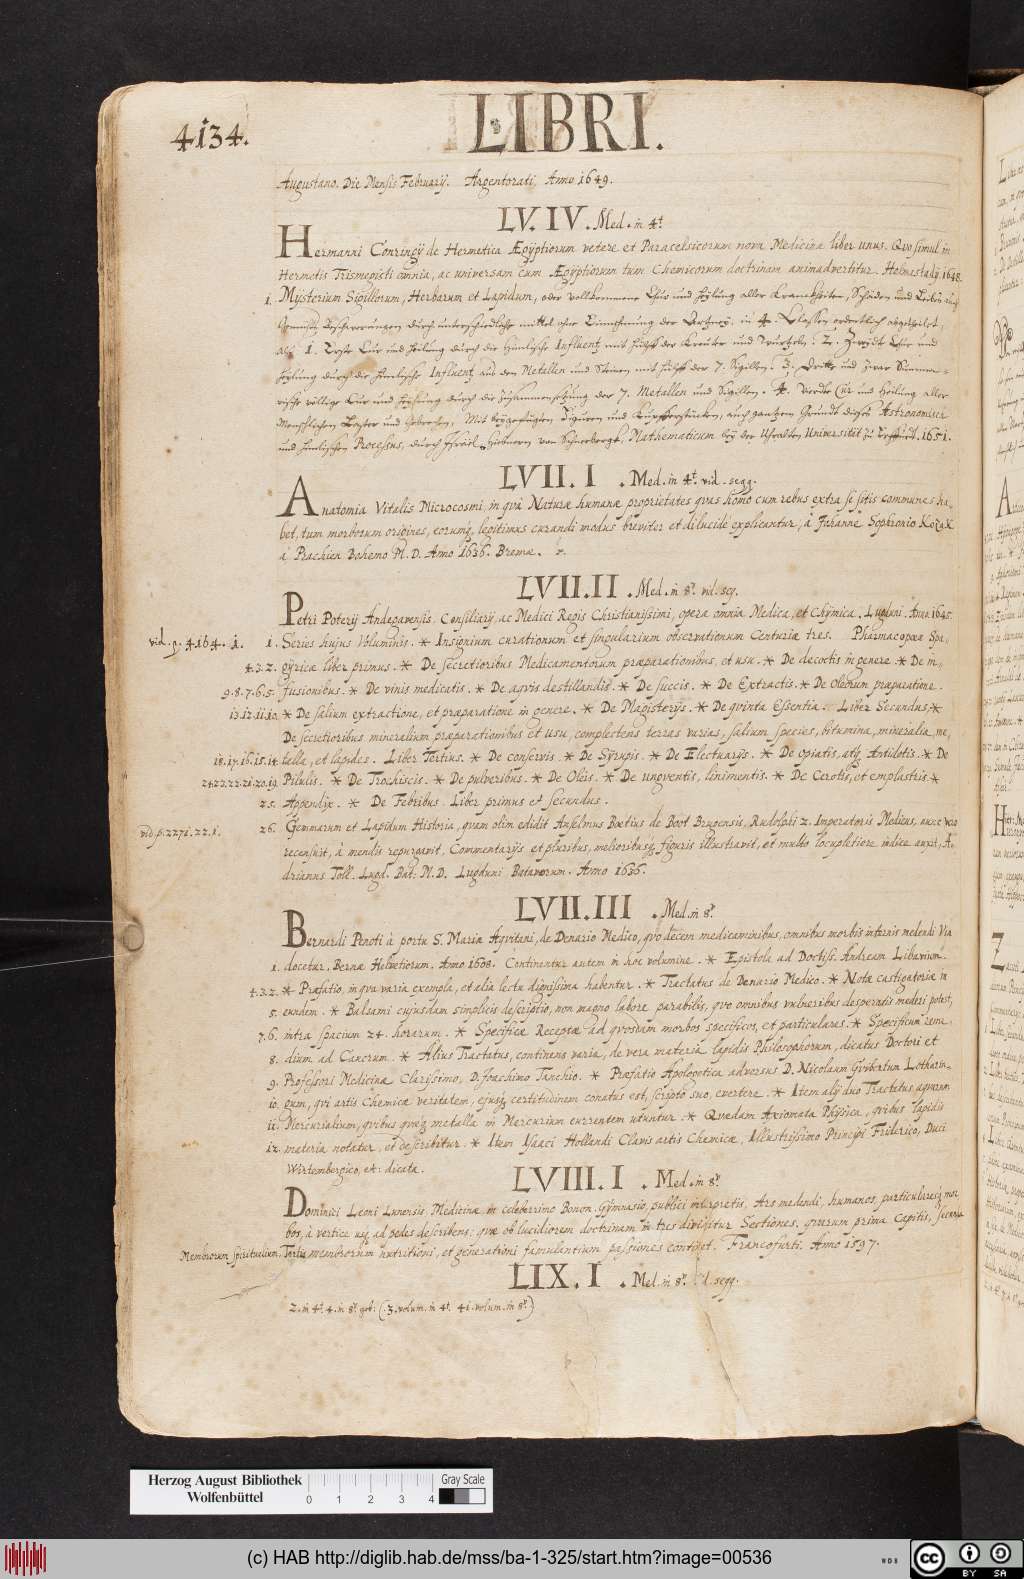 4134.
LIBRI.
Augustano. Die Mensis Februarij. Argentorati, Anno 1649.
LV. IV. Med. in 4t.
Hermanni Conringij de Hermetica Ægyptiorum vetere et Paracelsicorum nova Medicina liber unus. Qvo simul in
Hermetis Trismegisti omnia, ac universam cum Ægyptiorum tum Chemicorum doctrinam animadvertitur. Helmestadij 1648.
1. Mysterium Sigillorum, Herbarum et Lapidum, oder vollkommene Chur und Heylung aller Kranckheiten, Schäden und Leibs auch
Gemüths Beschwerungen durch unterschiedliche mittel ohne Einnehmung der Artzney. in 4. Classen ordentlich abgetheilet,
als 1. Erste Cur und Heilung durch die himlische Influentz mit hülff der Kreuter und Wurtzeln. 2. Zweyte Chur und
Heylung durch die himlische Influentz aus den Metallen und Steinen mit hülff der 7. Sigillen. 3. Dritte und zwar Summa-
rische völlige Cur und Heylung durch die Zusammensetzung der 7. Metallen und Sigillen. 4. Vierdte Cur und Heilung aller
Menschlichen Laster und Gebrechen, Mit beygefügten Figuren und Kupfferstücken, auch gantzem Grundt dieses Astronomisch
und himlischen Processus, durch Israël Hiebnern von Schneebergk, Mathematicum bey der Uhralten Universität zu Erffurdt. 1651.
LVII. I . Med. in 4t. vid. segg.
Anatomia Vitalis Microcosmi, in qvâ Naturæ humanæ proprietates qvas homo cum rebus extra se sitis communes ha-
bet, tum morborum origines, eorumq. legitimus curandi modus breviter et dilucide explicantur, à Johanne Sophronio Kozak
à Prachien Bohemo M. D. Anno 1636. Bremæ.
LVII. II . Med. in 8o. vid. seq.
Petri Poterij Andegavensis. Consiliarij, ac Medici Regis Christianissimi, opera omnia Medica, et Chymica. Lugduni. Anno 1645.
vid. p. 4164. 1. 1. Series hujus Voluminis. * Insignium curationum et singularium observationum Centuriæ tres. Pharmacopœa Spa-
4.3.2. gyrica liber primus. * De secretioribus Medicamentorum præparationibus, et usu. * De decoctis in genere * De in-
9.8.7.6.5. fusionibus. * De vinis medicatis. * De aqvis destillandis. * De succis. * De Extractis. * De Oleorum præparatione.
13.12.11.10. * De salium extractione, et præparatione in genere. * De Magisterijs. * De qvinta Essentia. Liber Secundus, *
De secretioribus mineralium præparationibus et usu, complectens terras varias, salium species, bitumina, mineralia, me-
18.17.16.15.14. talla, et lapides. Liber Tertius. * De conservis. * De Syrupis. * De Electuarijs. * De opiatis, atq. Antidotis. * De
24.23.22.21.20.19. Pilulis. * De Trochiscis. * De pulveribus. * De Oleis. * De ungventis, linimentis. * De Cerotis, et emplastris. *
25. Appendix. * De Febribus. Liber primus et secundus.
vid. p. 2271. 22. 1. 26. Gemmarum et Lapidum Historia, qvam olim edidit Anselmus Bœtius de Boot Brugensis, Rudolphi 2. Imperatoris Medicus, nunc vero
recensuit, à mendis repurgavit, Commentarijs et pluribus, melioribusq. figuris illustravit, et multo locupletiore indice auxit, A-
drianus Toll. Lugd. Bat: M. D. Lugduni Batavorum. Anno 1636.
LVII. III . Med. in 8o.
Bernardi Penoti à portu S. Mariæ Aqvitani, de Denario Medico, qvo decem medicaminibus, omnibus morbis internis medendi Via
1. docetur. Bernæ Helvetiorum. Anno 1608. Continentur autem in hoc volumine. * Epistola ad Doctiss. Andream Libavium.
4.3.2. * Præfatio, in qva varia exempla, et alia lectu dignissima habentur. * Tractatus de Denario Medico. * Notæ castigatoriæ in
5. eundem. * Balsami cujusdam simplicis descriptio, non magno labore parabilis, qvo omnibus vulneribus desperatis mederi potest,
7.6. intra spacium 24. horarum. * Specificæ Receptæ ad qvosdam morbos specificos, et particulares. * Specificum reme-
8. dium ad Cancrum. * Alius Tractatus, continens varia, de vera materia lapidis Philosophorum, dicatus Doctori et
9. Professori Medicinæ Clarissimo, D. Joachimo Tanchio. * Præfatio Apologetica adversus D. Nicolaum Gvibertum Lotharin-
10. gum, qvi artis Chemicæ veritatem, ejusq. certitudinem conatus est, scripto suo, evertere. * Item alij duo Tractatus, aqvarum
11. Mercurialium, qvibus qvæq. metalla in Mercurium currentem utuntur. * Qvædam Axiomata Physica, qvibus lapidis
12. materia notatur, et describitur. * Item Isaaci Hollandi Clavis artis Chemicæ, Illustrissimo Principi Friderico, Duci
Wirtembergico, etc: dicata.
LVIII. I . Med. in 8o.
Dominici Leoni Lunensis, Medicinæ in celeberrimo Bonon. Gymnasio, publici interpretis, Ars medendi, humanos, particularesq. mor-
bos, à vertice usq. ad pedes describens; qvæ ob lucidiorem doctrinam in tres dividitur Sectiones, qvarum prima Capitis, Secunda
Membrorum spiritualium, Tertia membrorum nutritioni, et generationi famulantium passiones continet. Francofurti. Anno 1597.
LIX. I . Med. in 8o. segg.
2. in 4t. 4. in 8o. geb: (3. volum. in 4t. 41. volum. in 8o.)
Herzog August Bibliothek
Wolfenbüttel
0 1 2 3 4
Gray Scale
(c) HAB http://diglib.hab.de/mss/ba-1-325/start.htm?image=00536
WDB
cc BY SA